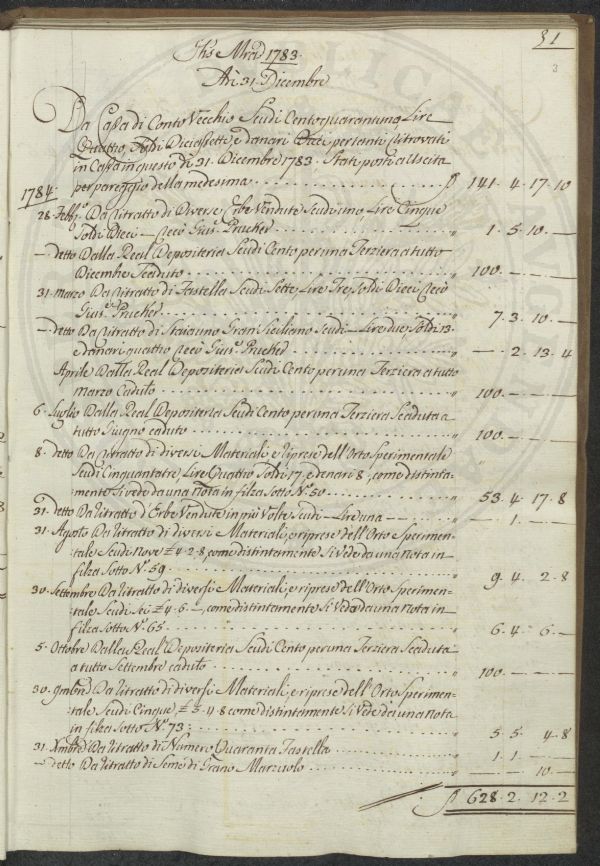 31
3
Jhs Mrad 1783.
Adì 31. Dicembre
Da Cassa di Conto Vecchio Scudi Centoquarantuno Lire
Quattro, Soldi Diciassette, e danari Dieci per tanti ritrovati
in Cassa in questo dì 31. Dicembre 1783. Stati posti a Uscita
per pareggio della medesima . . . ∫ 141. 4. 17. 10
1784.
28. Febb.º Da ritratto di Diverse Erbe Vendute Scudi uno Lire Cinque
Soldi Dieci — recò Gius.º Prucher . . . " 1. 5. 10. —
— detto Dalla Real Depositeria Scudi Cento per una Terziera a tutto
Dicembre Scaduto . . . " 100. — . — . —
31. Marzo Da ritratto di Fastella Scudi Sette, Lire Tre, Soldi Dieci recò
Gius.º Prucher . . . " 7. 3. 10. —
— detto Da ritratto di Staia uno Gran Siciliano Scudi — Lire due, Soldi 13.
e danari quattro recò Gius.º Prucher . . . " — . 2. 13. 4
Aprile Dalla Real Depositeria Scudi Cento per una Terziera a tutto
Marzo Caduto . . . " 100. — . — . —
6. Luglio Dalla Real Depositeria Scudi Cento per una Terziera Scaduta a
tutto Giugno caduto . . . " 100. — . — . —
8. detto Da ritratto di diversi Materiali, e riprese dell'Orto Sperimentale
Scudi Cinquantatre, Lire Quattro Soldi 17. e denari 8., come distinta-
mente Si vede da una Nota in filza Sotto N.º 50 . . . " 53. 4. 17. 8
31. detto Da ritratto d'Erbe Vendute in più Volte Scudi — Lire una — . . . " — . 1. — . —
31. Agosto Da ritratto di diversi Materiali, e riprese dell'Orto Sperimen-
tale Scudi Nove £ 4. 2. 8, come distintamente Si Vede da una Nota in
filza Sotto N.º 59. . . . " 9. 4. 2. 8
30. Settembre Da ritratto di diversi Materiali, e riprese dell'Orto Sperimen-
tale Scudi Sei £ 4. 6. —, come distintamente Si Vede da una Nota in
filza Sotto N.º 65. . . . " 6. 4. 6. —
5. Ottobre Dalla Real Depositeria Scudi Cento per una Terziera Scaduta
a tutto Settembre caduto . . . " 100. — . — . —
30. 9mbre Da ritratto di diversi Materiali, e riprese dell'Orto Sperimen-
tale Scudi Cinque, £ 5. 4. 8 come distintamente Si Vede da una Nota
in filza Sotto N.º 73: . . . " 5. 5. 4. 8
31. Xmbre Da ritratto di Numero Quaranta Fastella . . . " 1. 1. — . —
— detto Da ritratto di Seme di Grano Marzuolo . . . " — . — . 10. —
∫ 628. 2. 12. 2